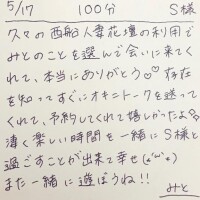 5/17 100分 S様
久々の西船人妻花壇の利用で
みとのことを選んで会いに来てく
れて、本当にありがとう♡♡ 存在
を知ってすぐにオキニトークを送って
くれて、予約してくれて嬉しかったよ
凄く楽しい時間を一緒にS様と
過ごすことが出来て幸せ(*´ω`*)
また一緒に遊ぼうね!!
みと